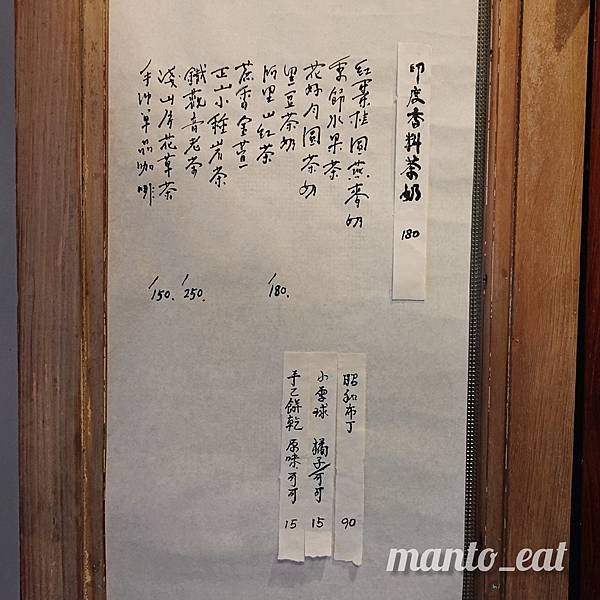 印度香料茶奶 180
紅棗桂圓燕麥奶
季節水果茶
花好月圓茶奶
黑豆茶奶
阿里山紅茶 /180.
蔗香金萱
正山小種岩茶
鐵觀音老茶 /250.
淺山房花草茶 /150.
手沖單品咖啡
昭和布丁 90
小雪球 橘子/可可 15
手工餅乾 原味可可 15
manto_eat